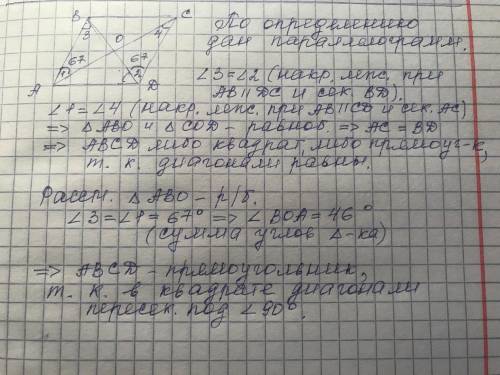 B
C
3
4
O
67
67
1
2
A
D
По определению
дан параллелограмм.
∠3=∠2 (накр. леж. при
AB∥DC и сек. BD).
∠1=∠4 (накр. леж. при AB∥CD и сек. AC)
=> △ABO и △COD - равноб. => AC = BD
=> ABCD либо квадрат, либо прямоуг-к,
т. к. диагонали равны.
Рассм. △ABO - р/б.
∠3=∠1=67° => ∠BOA=46°
(сумма углов △-ка)
=> ABCD - прямоугольник,
т. к. в квадрате диагонали
пересек. под ∠90°.